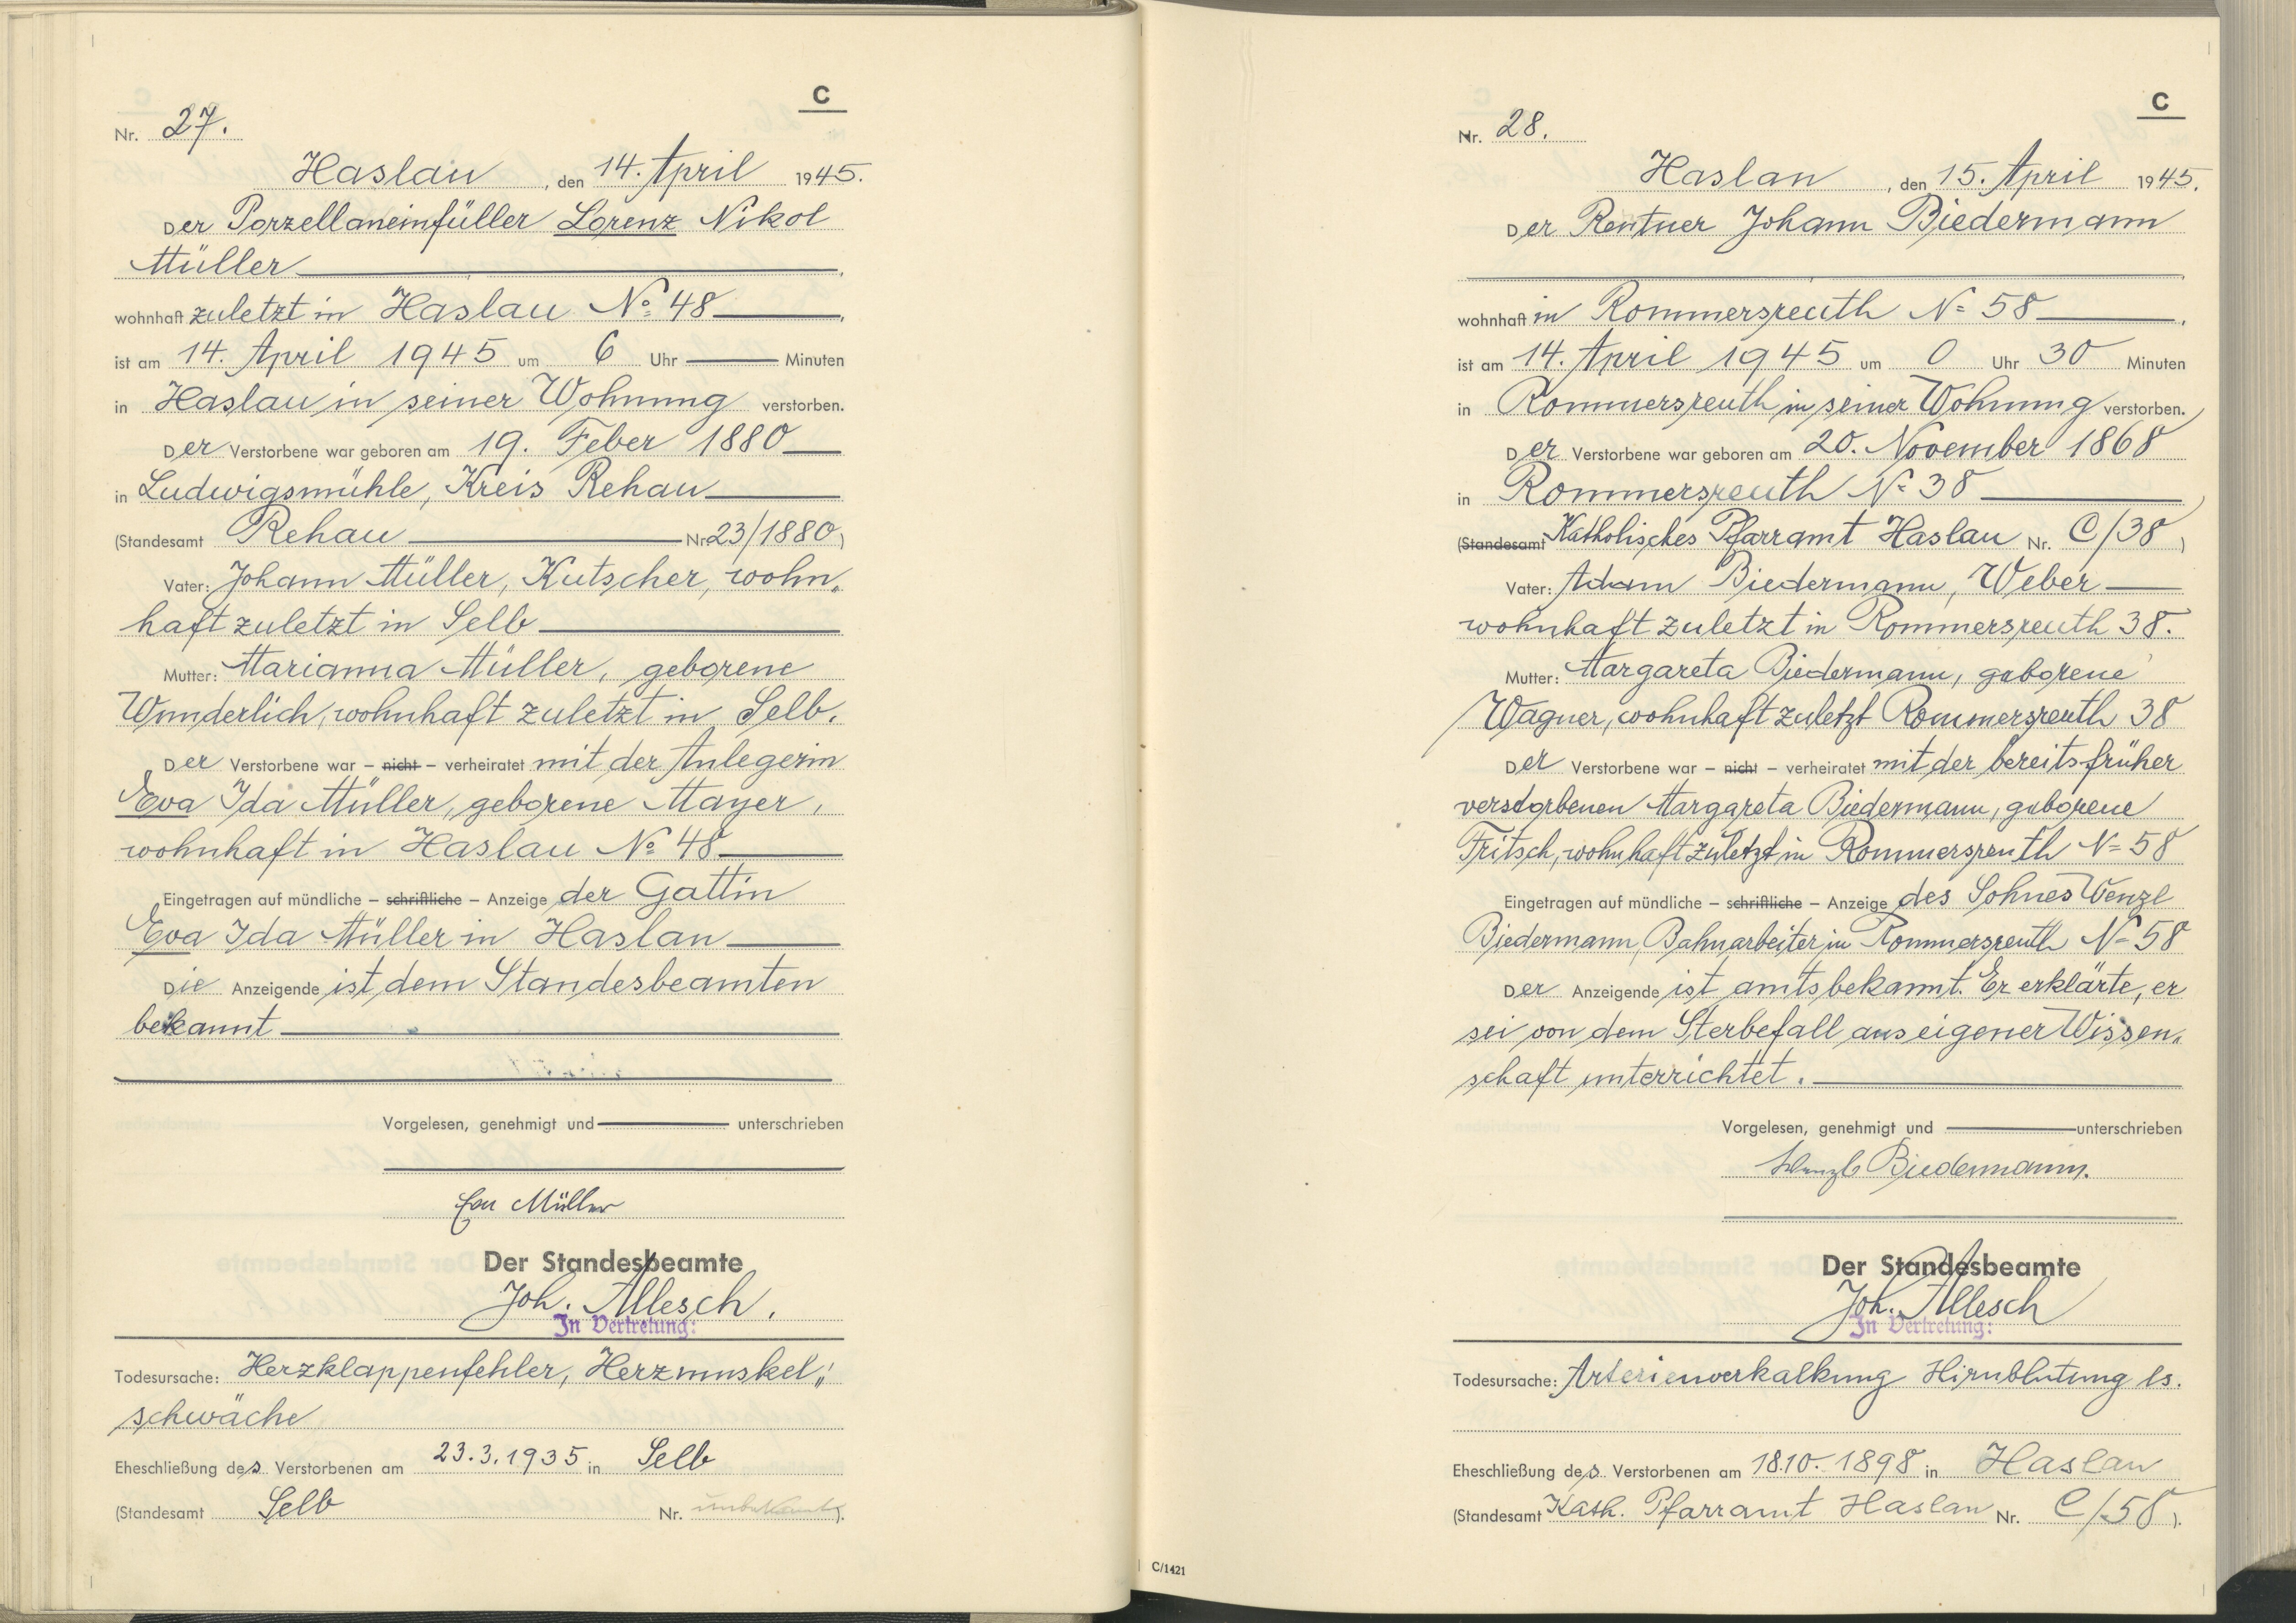 C
Nr. 27.
Haslau, den 14. April 1945.
Der Porzellaneinfüller Lorenz Nikol
Müller
wohnhaft zuletzt in Haslau No 48
ist am 14. April 1945 um 6 Uhr Minuten
in Haslau in seiner Wohnung verstorben.
Der Verstorbene war geboren am 19. Feber 1880
in Ludwigsmühle, Kreis Rehau
(Standesamt Rehau Nr. 23/1880)
Vater: Johann Müller, Kutscher, wohn„
haft zuletzt in Selb
Mutter: Marianna Müller, geborene
Wunderlich, wohnhaft zuletzt in Selb.
Der Verstorbene war – nicht – verheiratet mit der Anlegerin
Eva Ida Müller, geborene Mayer,
wohnhaft in Haslau No 48
Eingetragen auf mündliche – schriftliche – Anzeige der Gattin
Eva Ida Müller in Haslau
Die Anzeigende ist dem Standesbeamten
bekannt
Vorgelesen, genehmigt und unterschrieben
Eva Müller
Der Standesbeamte
Joh. Allesch.
In Vertretung:
Todesursache: Herzklappenfehler, Herzmuskel„
schwäche
Eheschließung des Verstorbenen am 23.3.1935 in Selb
(Standesamt Selb Nr. unbekannt).
C
Nr. 28.
Haslau, den 15. April 1945.
Der Rentner Johann Biedermann
wohnhaft in Rommersreuth N= 58
ist am 14. April 1945 um 0 Uhr 30 Minuten
in Rommersreuth in seiner Wohnung verstorben.
Der Verstorbene war geboren am 20. November 1868
in Rommersreuth N= 38
(Standesamt Katholisches Pfarramt Haslau Nr. C/38)
Vater: Adam Biedermann, Weber
wohnhaft zuletzt in Rommersreuth 38.
Mutter: Margareta Biedermann, geborene
Wagner, wohnhaft zuletzt Rommersreuth 38
Der Verstorbene war – nicht – verheiratet mit der bereits früher
verstorbenen Margareta Biedermann, geborene
Fritsch, wohnhaft zuletzt in Rommersreuth N= 58
Eingetragen auf mündliche – schriftliche – Anzeige des Sohnes Wenzl
Biedermann, Bahnarbeiter in Rommersreuth N= 58
Der Anzeigende ist amtsbekannt. Er erklärte, er
sei von dem Sterbefall aus eigener Wissen„
schaft unterrichtet.
Vorgelesen, genehmigt und unterschrieben
Wenzl Biedermann.
Der Standesbeamte
Joh. Allesch
In Vertretung:
Todesursache: Arterienverkalkung Hirnblutung ls.
Eheschließung des Verstorbenen am 18.10.1898 in Haslau
(Standesamt Kath. Pfarramt Haslau Nr. C/58).
C/1421